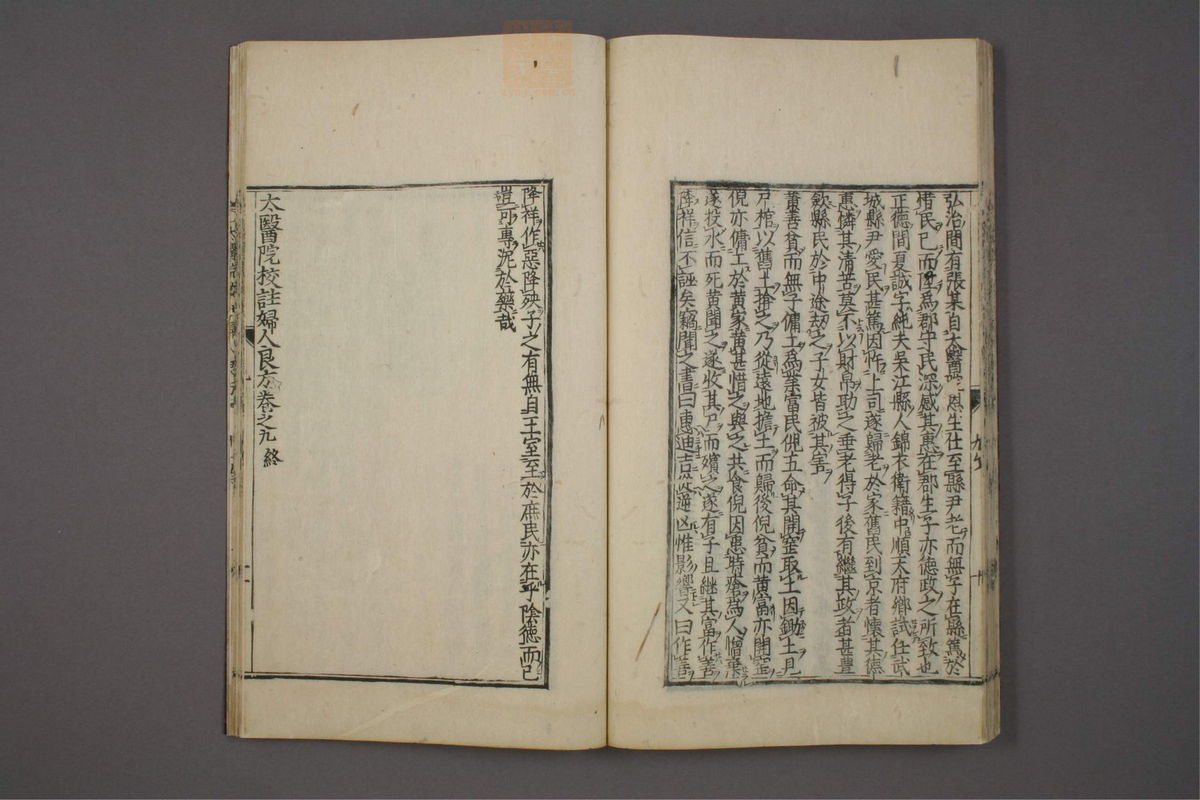 弘治間有張某自太醫院恩生仕至縣尹老而無子在縣篤於
惜民已而陞爲郡守民深感其惠在郡生子亦德政之所致也
正德間夏誠字純夫吳江縣人錦衣衛籍中順天府鄉試任武
城縣尹愛民甚篤因忤上司遂歸老於家舊民到京者懷其德
惠憐其清苦莫不以財帛助之垂老得子後有繼其政者甚豊
歛縣民於中途刼之子女皆被其害
黄善貧而無子傭工爲業富民倪五命其開窑取土因鋤土見
尸棺以舊土搶之乃從遠地擔土而歸後倪貧而黄富亦開窑
倪亦傭工於黄家黄甚惜之與之共食倪因患時瘡爲人憎棄
遂投水而死黄聞之遂收其尸而殯之遂有子且継其富作善
降祥信不誣矣竊聞之書曰惠迪吉從逆凶惟影響又曰作善
降祥作惡降殃子之有無自王室至於庶民亦在乎陰德而已
豈可專泥於藥哉
太醫院校註婦人良方卷之九 終